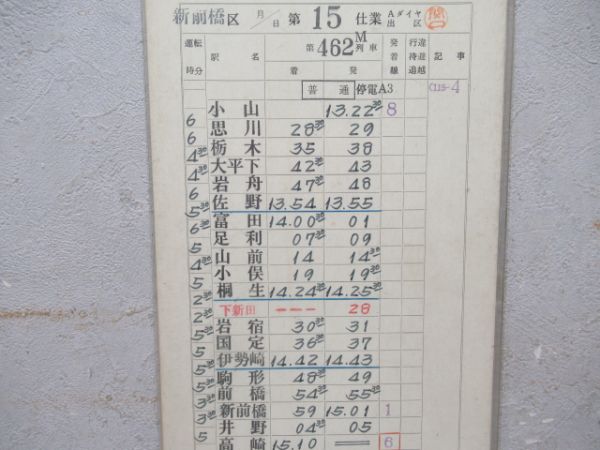 新前橋区 月/日 第15仕業 Aダイヤ出区
運転時分 駅名 第462M列車 着 発 発着線 行違待避追越 記事
普通 停電A3 C115-4
小山 13.22 30 8
6
思川 28 30 29
6
栃木 35 38
4 30 大平下 42 30 43
4 30 岩舟 47 30 48
6
佐野 13.54 13.55
5 30 富田 14.00 30 01
6 30 足利 07 30 09
5
山前 14 14 30
4 30 小俣 19 19 30
5
桐生 14.24 30 14.25 30
2 30 下新田 --- 28
2 30 岩宿 30 30 31
5 30 国定 36 30 37
5
伊勢崎 14.42 14.43
5 30 駒形 48 30 49
5 30 前橋 54 30 55 30
3 30 新前橋 59 15.01 1
3 30 井野 04 30 05
5
高崎 15.10 ══ 6